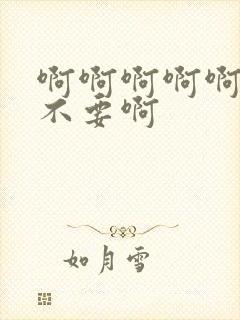 啊啊啊啊啊
不要啊
如月雪